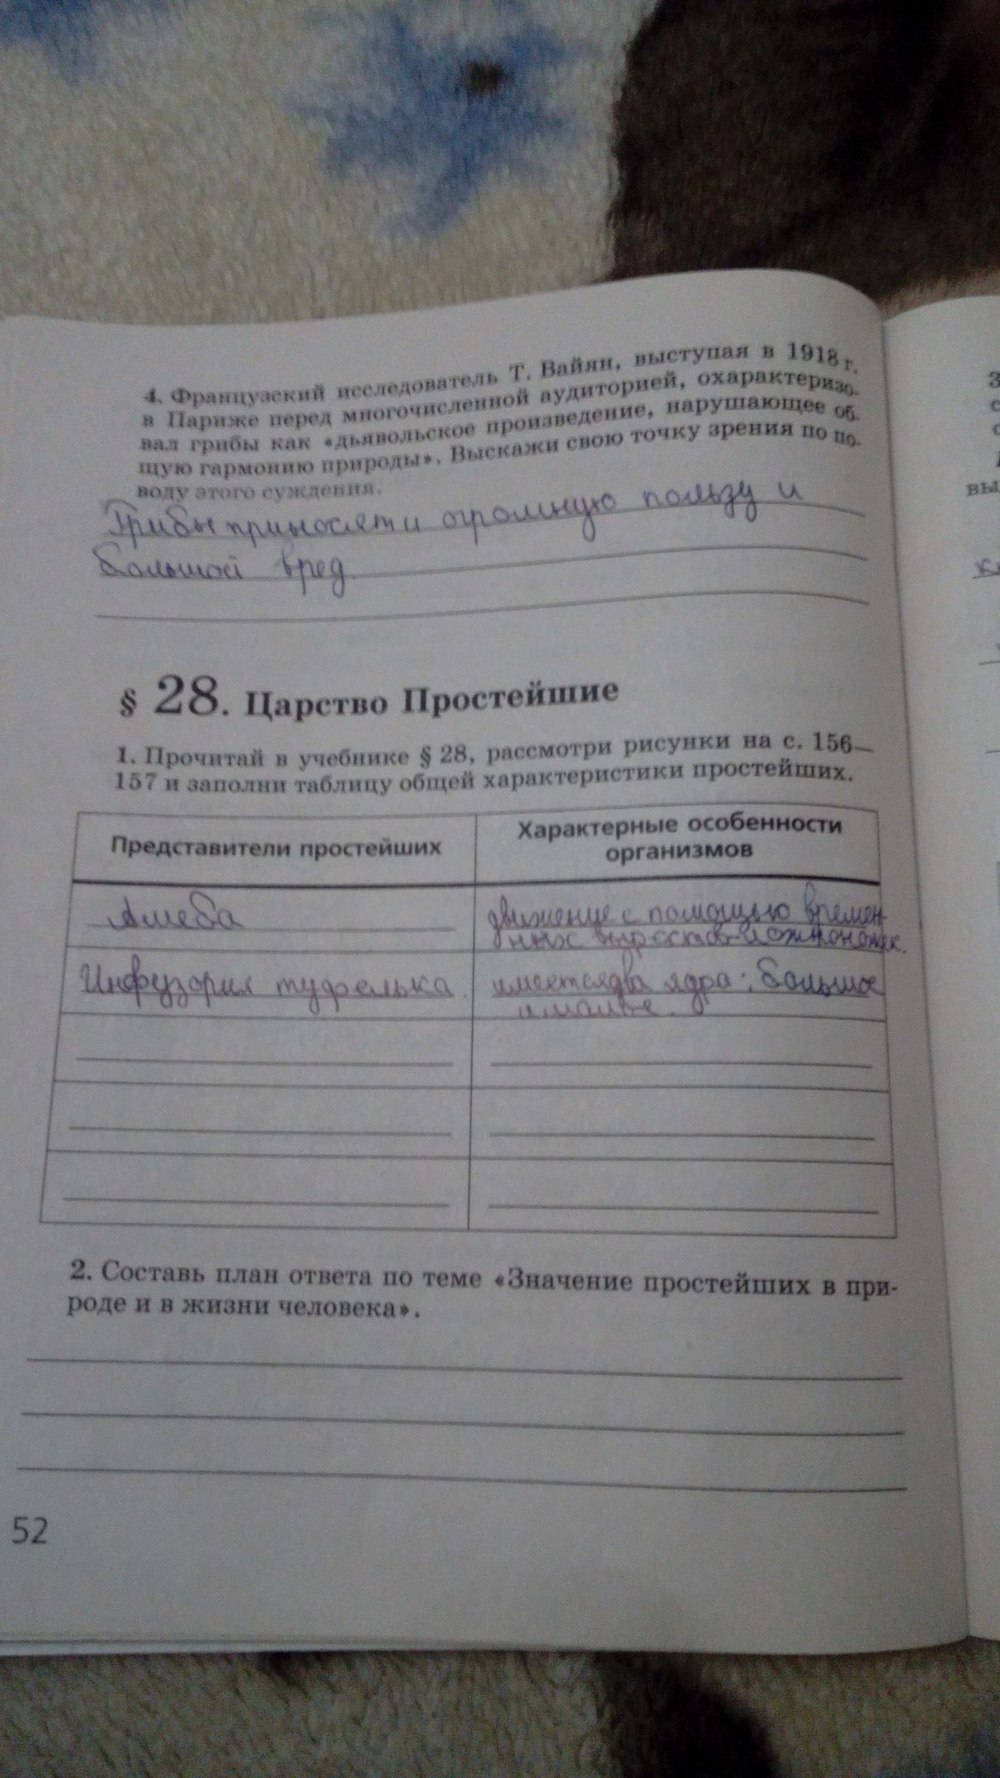 4. Французский исследователь Т. Вайян, выступая в 1918 г.
в Париже перед многочисленной аудиторией, охарактеризо-
вал грибы как «дьявольское произведение, нарушающее об-
щую гармонию природы». Выскажи свою точку зрения по по-
воду этого суждения.
Грибы приносят и огромную пользу и
большой вред.
§ 28. Царство Простейшие
1. Прочитай в учебнике § 28, рассмотри рисунки на с. 156—
157 и заполни таблицу общей характеристики простейших.
Представители простейших
Характерные особенности
организмов
Амеба
движение с помощью времен-
ных выростов-ложноножек.
Инфузория туфелька.
имеется два ядра: большое
и малое.
2. Составь план ответа по теме «Значение простейших в при-
роде и в жизни человека».
52
вы